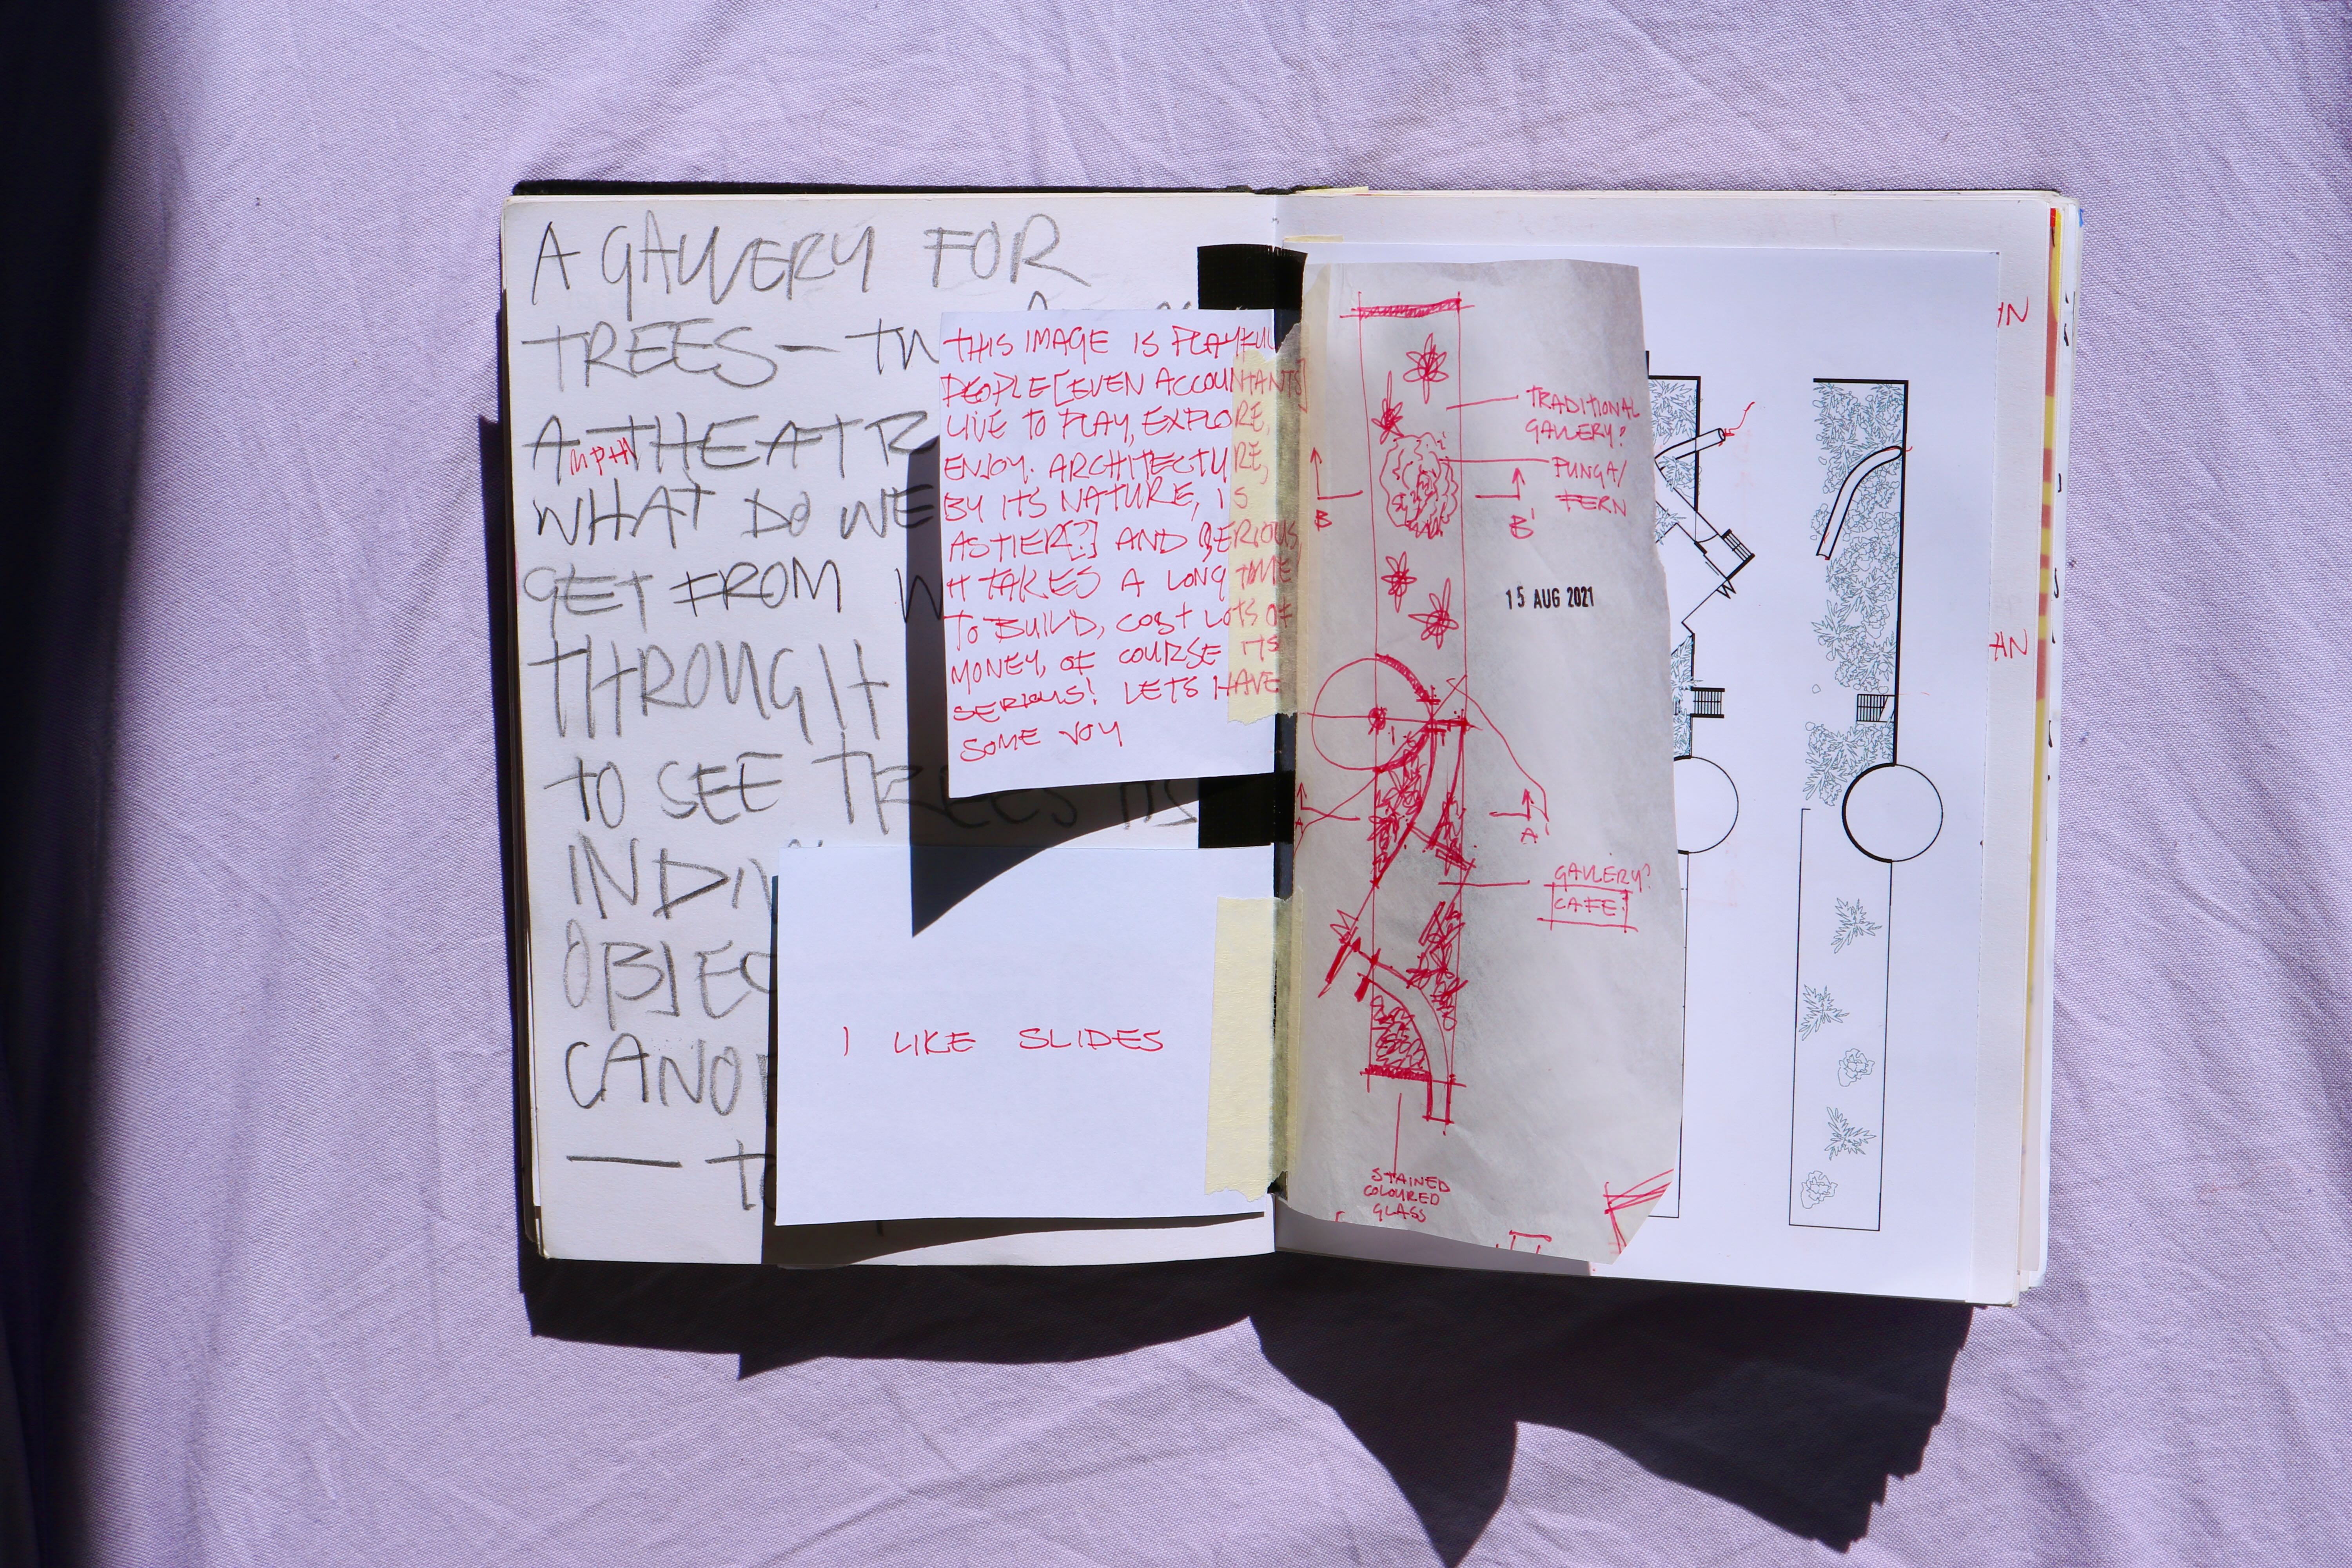 A GALLERY FOR
TREES — TW
A MPHI THEATR
WHAT DO WE
GET FROM W
THROUGH
TO SEE TREES AS
INDIV
OBJEC
CANOP
— to
THIS IMAGE IS PLAYFUL
PEOPLE [EVEN ACCOUNTANTS]
LIVE TO PLAY, EXPLORE,
ENJOY. ARCHITECTURE,
BY ITS NATURE, IS
ASTIER[?] AND SERIOUS,
IT TAKES A LONG TIME
TO BUILD, COST LOTS OF
MONEY, OF COURSE ITS
SERIOUS! LETS HAVE
SOME JOY
I LIKE SLIDES
TRADITIONAL
GALLERY?
PUNGA/
FERN
B
B'
15 AUG 2021
A
A'
GALLERY?
CAFE?
STAINED
COLOURED
GLASS
AN
AN